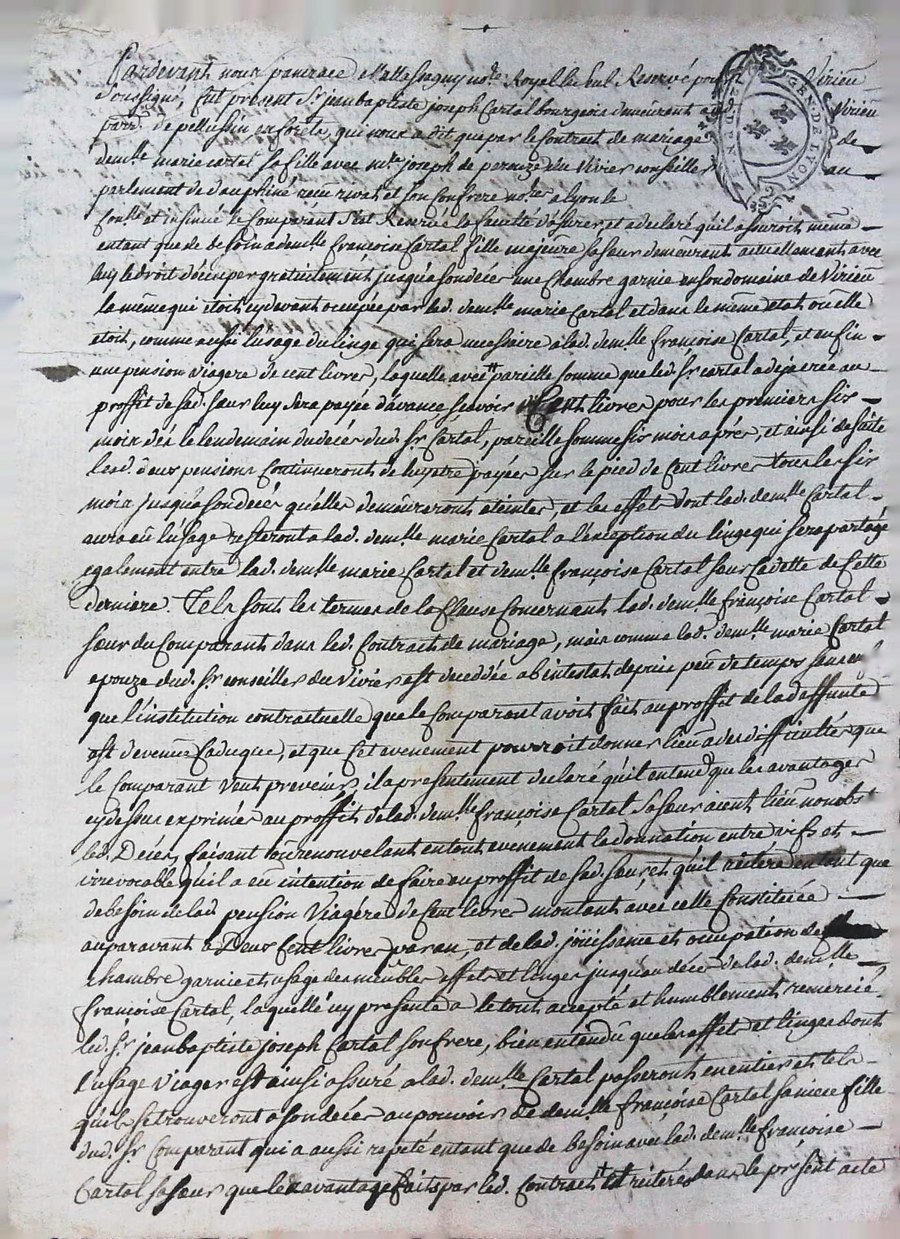 Pardevant nous pancrace Mallessagny not.e Royal le seul Reservé pour Virieu
soussigné, fut present Sr. jean baptiste joseph Cartal bourgeois demeurant a Virieu
parr. de pellussin en forets, qui nous a dit que par le Contrat de mariage de
dem.lle marie cartal sa fille avec m.re joseph de du Vivier conseiller au
parlement de dauphiné recu rival et son Confrere no.res a lyon le
Con.lé et insinué le Comparant s'etat Reservé la faculté d'assurer et a declaré qu'il assuroit même
entant que de besoin a dem.lle françoise Cartal fille majeure sa sœur demeurant actuellement avec
luy le droit d'occuper gratuitement jusqua son decès une Chambre garnie en son domaine de Virieu
la même qui etoit cydevant occupée par lad. dem.lle marie Cartal et dans le même etat ou elle
etoit, comme aussi l'usage du linge qui sera necessaire a lad. dem.lle françoise Cartal, et enfin
une pension viagere de cent livres, laquelle avec pareille somme que led. Sr. cartal a deja creé au
proffit de sad. sœur luy sera payée d'avance scavoir Cent livres pour les premiers six
mois dès le lendemain du decès dud. Sr. Cartal, pareille somme six mois apres, et ainsi de suite
lesd. deux pensions Continueront de luy etre payées sur le pied de Cent livres tous les six
mois jusqua son decès qu'elles demeureront eteintes, et les effets dont lad. dem.lle Cartal
aura eu l'usage resteront a lad. dem.lle marie Cartal a l'exception du linge qui sera partagé
egalement entre lad. dem.lle marie Cartal et dem.lle françoise Cartal sœur Cadette de Cette
derniere. Tels sont les termes de la Clause Concernant lad. dem.lle françoise Cartal
sœur du Comparant dans led. Contract de mariage, mais comme lad. dem.lle marie Cartal
epouze dud. Sr. conseiller du Vivier est decedée ab intestat depuis peu de temps
que l'institution contractuelle que le Comparant avoit fait au proffit de lad. deffunte
est devenue Caduque, et que Cet evenement pourroit donner lieu a des difficultés que
le Comparant veut prevenir, il a presentement declaré qu'il entend que les avantages
cy dessus exprimés au proffit de lad. dem.lle françoise Cartal sa sœur aient lieu nonobst.
led. Décès, faisant ou renouvelant en tout evenement la donnation entre vifs et
irrevocable qu'il a eu intention de faire au proffit de sad. sœur, et qu'il réitère entant que
de besoin de lad. pension Viagere de Cent livres montant avec celle Constituée
auparavant a Deux Cent livres par an, et de lad. joüissance et occupation de
chambre garnie et usage des meubles effets et linges jusqu'au décès de lad. dem.lle
françoise Cartal, laquelle icy presente a le tout accepté et humblement remercié
led. Sr. jean baptiste joseph Cartal son frere, bien entendû que les effet et linges dont
l'usage viager est ainsi assuré a lad. dem.lle Cartal passeront en entier et tels
qu'ils se trouveront a son decès au pouvoir de dem.lle françoise Cartal sa niece fille
dud. Sr. Comparant qui a aussi repeté entant que de besoin avec lad. dem.lle françoise
Cartal sa sœur que les avantages faits par led. Contract et réiterés dans le présent acte
GEN. DE LYON